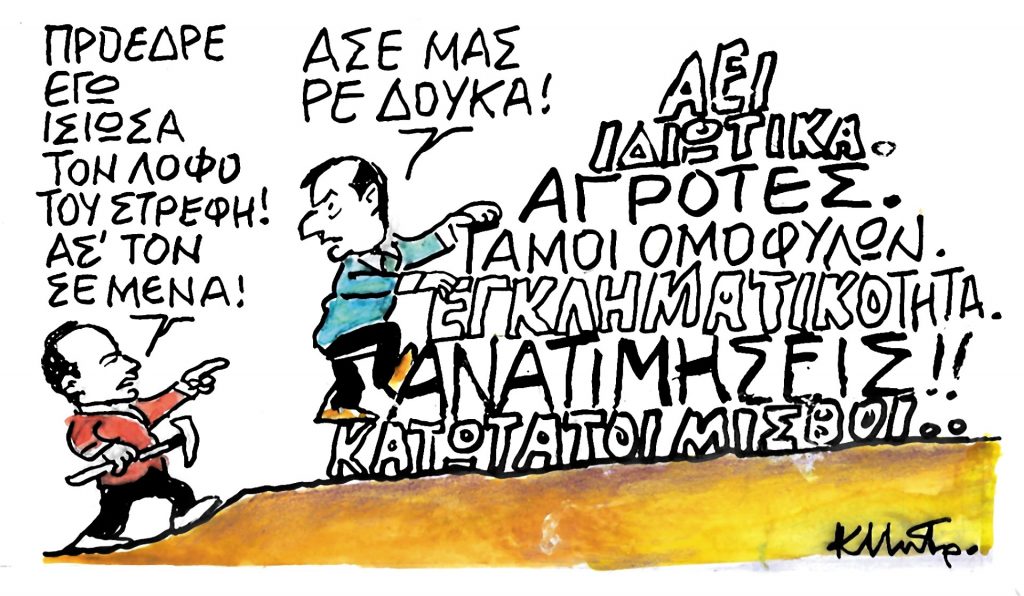 ΠΡΟΕΔΡΕ
ΕΓΩ
ΙΣΙΩΣΑ
ΤΟΝ ΛΟΦΟ
ΤΟΥ ΣΤΡΕΦΗ!
ΑΣ' ΤΟΝ
ΣΕ ΜΕΝΑ!
ΑΣΕ ΜΑΣ
ΡΕ ΔΟΥΚΑ!
ΑΕΙ
ΙΔΙΩΤΙΚΑ.
ΑΓΡΟΤΕΣ.
ΓΑΜΟΙ ΟΜΟΦΥΛΩΝ.
ΕΓΚΛΗΜΑΤΙΚΟΤΗΤΑ.
ΑΝΑΤΙΜΗΣΕΙΣ!!
ΚΑΤΩΤΑΤΟΙ ΜΙΣΘΟΙ..